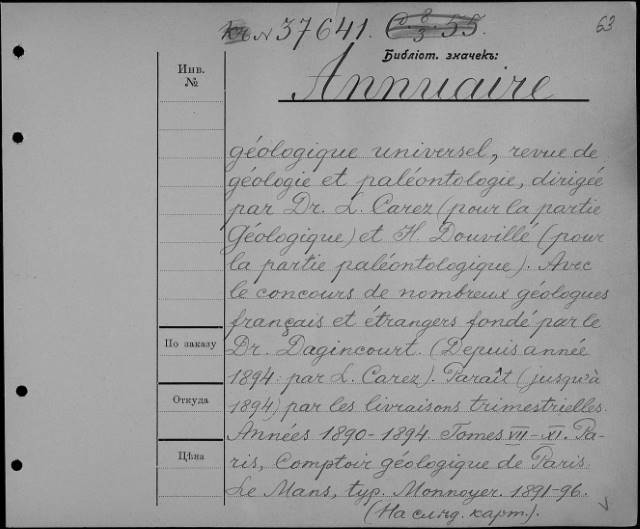 № 37641. 63
Библіот. значекъ:
Инв.
№
Annuaire
géologique universel, revue de
géologie et paléontologie, dirigée
par Dr. L. Carez (pour la partie
Géologique) et H. Douvillé (pour
la partie paléontologique). Avec
le concours de nombreux géologues
français et étrangers fondé par le
По заказу
Dr. Dagincourt. (Depuis année
1894 par L. Carez). Paraît (jusqu'à
Откуда
1894) par les livraisons trimestrielles.
Années 1890-1894. Tomes VII-XI. Pa-
Цѣна
ris, Comptoir géologique de Paris.
Le Mans, typ. Monnoyer. 1891-96.
(На слѣд. карт.).